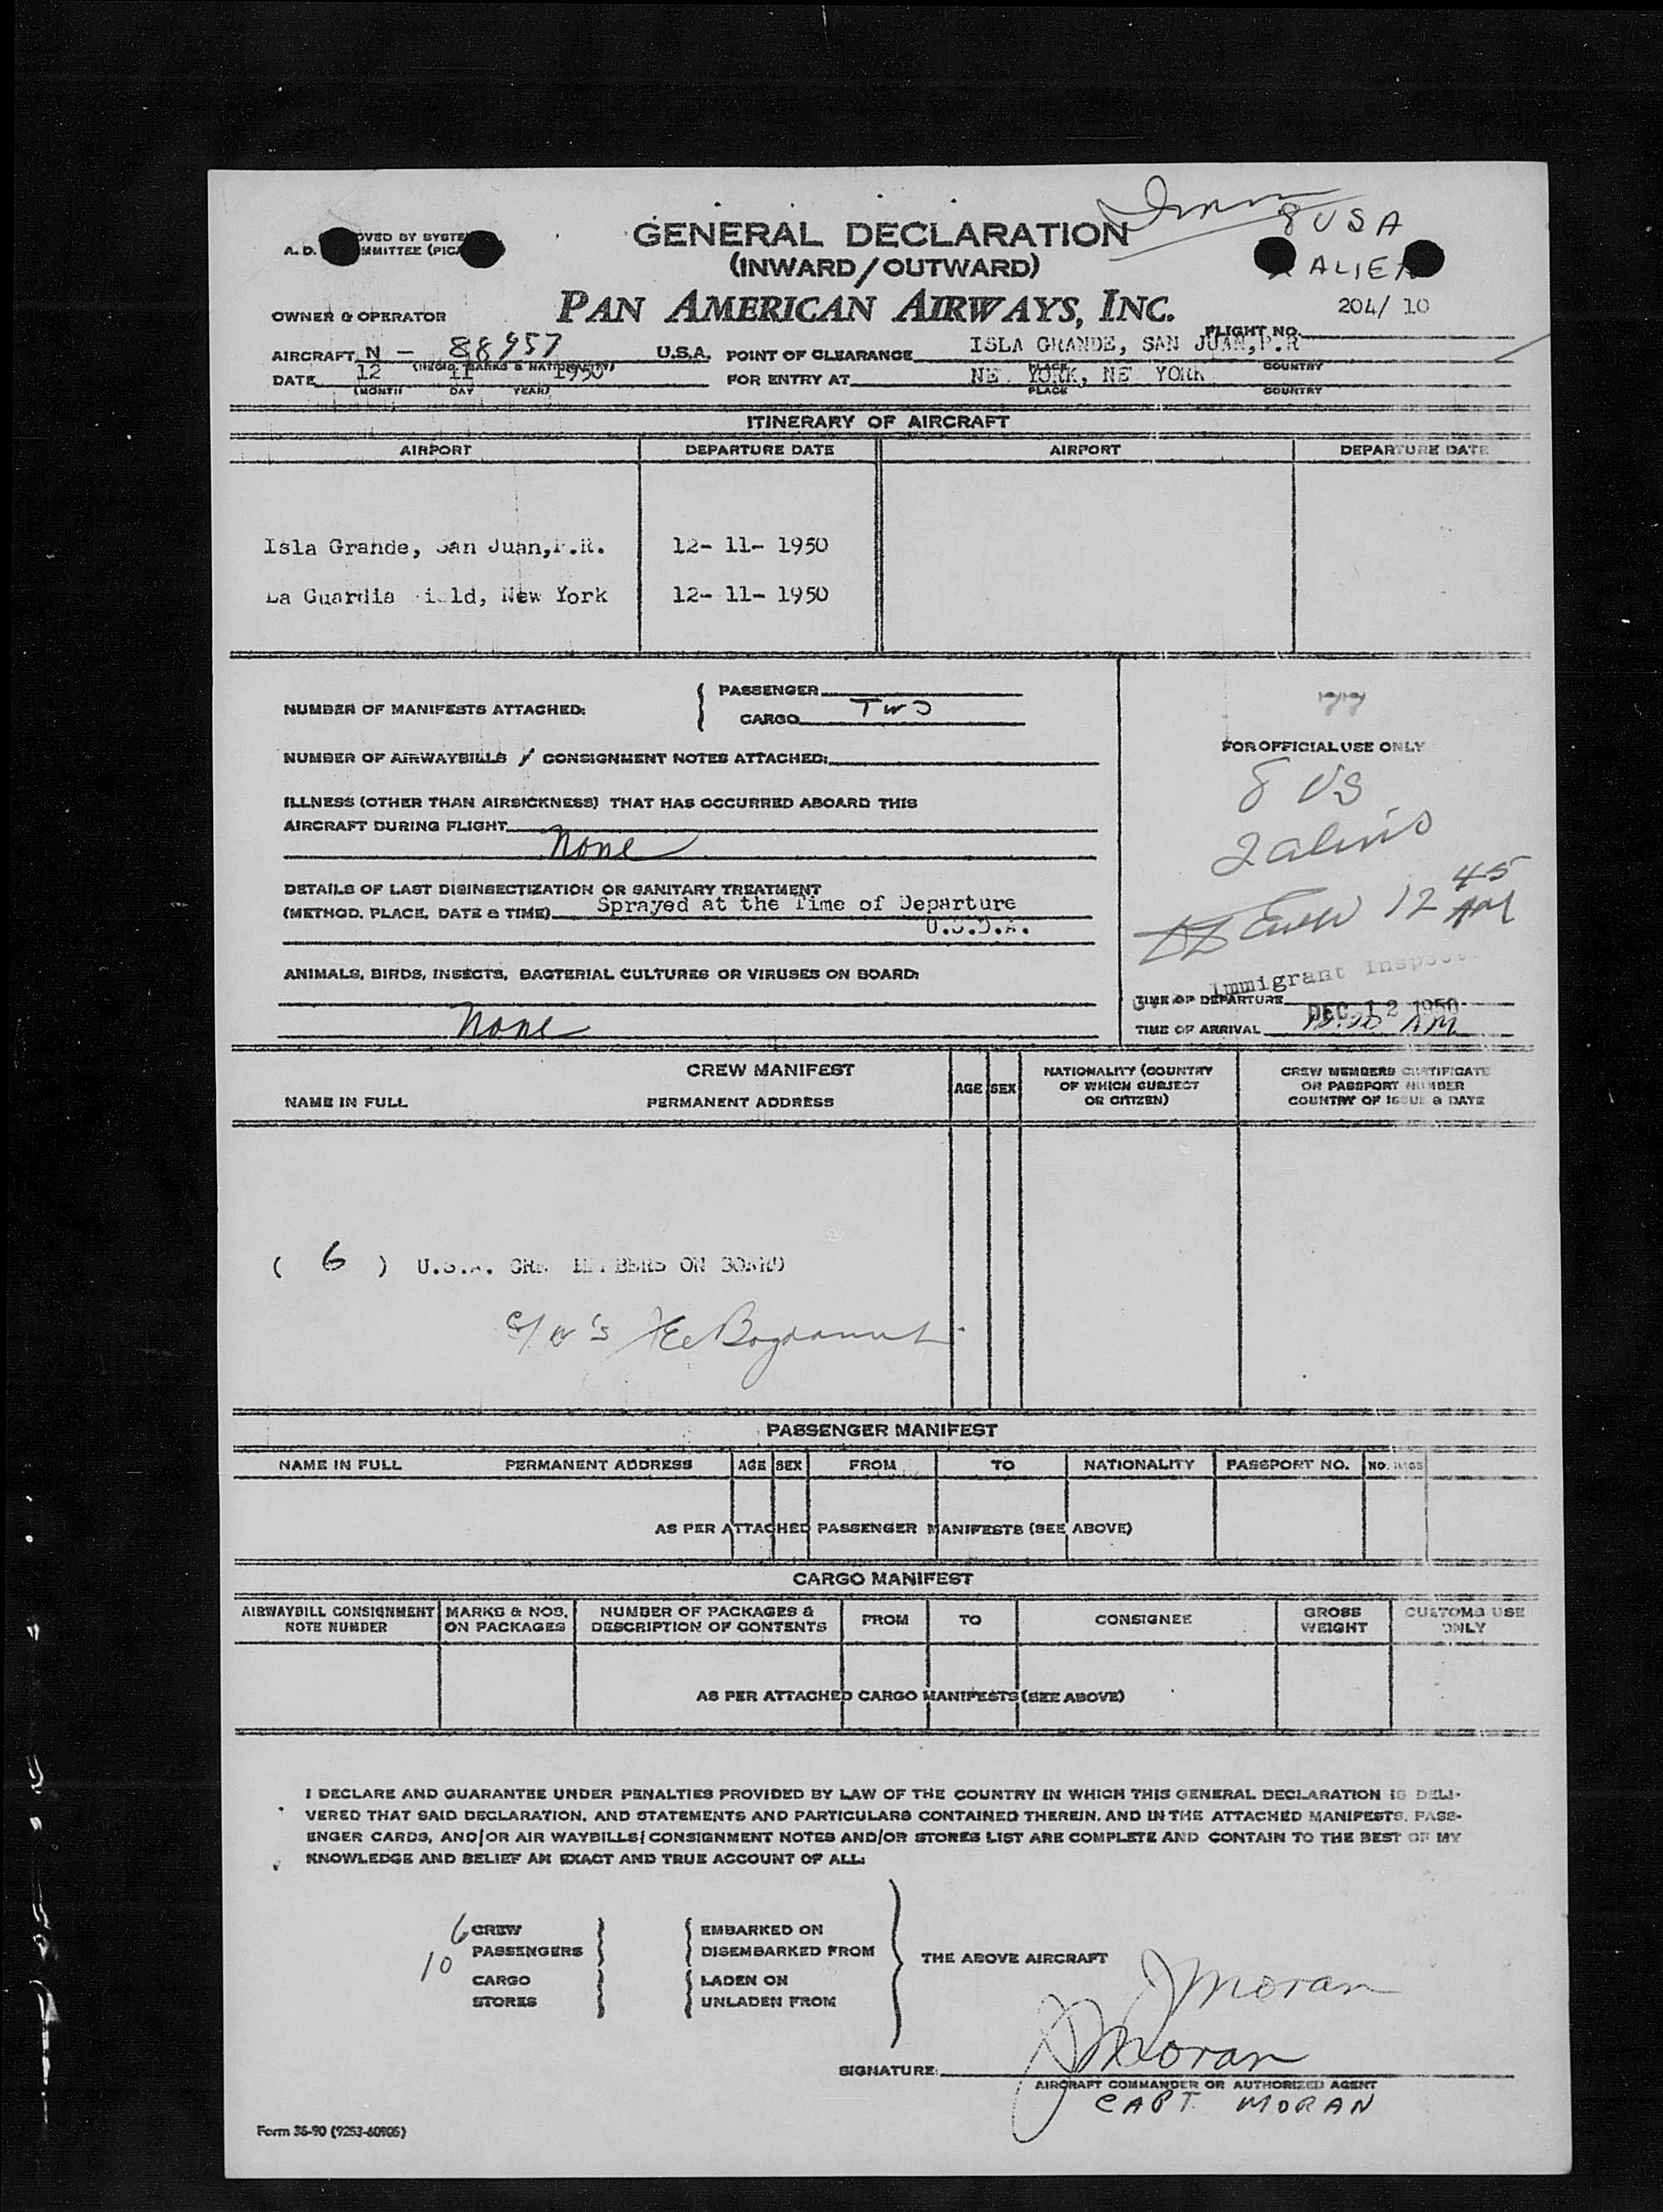 GENERAL DECLARATION
(INWARD/OUTWARD)
8 USA
ALIE
A. D.
MMITTEE (PIC
PAN AMERICAN AIRWAYS, INC.
204/ 10
OWNER & OPERATOR
FLIGHT NO.
AIRCRAFT N - 88957 U.S.A. POINT OF CLEARANCE ISLA GRANDE, SAN JUAN, P.R
PLACE COUNTRY
DATE 12 11 1950 FOR ENTRY AT NE YORK, NE YORK
(MONTH DAY YEAR) PLACE COUNTRY
ITINERARY OF AIRCRAFT
AIRPORT DEPARTURE DATE AIRPORT DEPARTURE DATE
Isla Grande, San Juan, P.R. 12- 11- 1950
La Guardia i ld, New York 12- 11- 1950
NUMBER OF MANIFESTS ATTACHED: PASSENGER
CARGO TWO
77
NUMBER OF AIRWAYBILLS / CONSIGNMENT NOTES ATTACHED:
FOR OFFICIAL USE ONLY
8 US
ILLNESS (OTHER THAN AIRSICKNESS) THAT HAS OCCURRED ABOARD THIS
AIRCRAFT DURING FLIGHT
None
2 aliens
DETAILS OF LAST DISINSECTIZATION OR SANITARY TREATMENT
(METHOD, PLACE, DATE & TIME) Sprayed at the Time of Departure
U.S.D.A.
12 45 AM
ANIMALS, BIRDS, INSECTS, BACTERIAL CULTURES OR VIRUSES ON BOARD:
None
Immigrant Inspect
TIME OF DEPARTURE
DEC 12 1950
TIME OF ARRIVAL AM
CREW MANIFEST
NAME IN FULL PERMANENT ADDRESS AGE SEX NATIONALITY (COUNTRY OF WHICH SUBJECT OR CITIZEN) CREW MEMBERS CERTIFICATE OR PASSPORT NUMBER COUNTRY OF ISSUE & DATE
( 6 ) U.S.A. CRE MEMBERS ON BOARD
PASSENGER MANIFEST
NAME IN FULL PERMANENT ADDRESS AGE SEX FROM TO NATIONALITY PASSPORT NO. NO. BAGS
AS PER ATTACHED PASSENGER MANIFESTS (SEE ABOVE)
CARGO MANIFEST
AIRWAYBILL CONSIGNMENT NOTE NUMBER MARKS & NOS. ON PACKAGES NUMBER OF PACKAGES & DESCRIPTION OF CONTENTS FROM TO CONSIGNEE GROSS WEIGHT CUSTOMS USE ONLY
AS PER ATTACHED CARGO MANIFESTS (SEE ABOVE)
I DECLARE AND GUARANTEE UNDER PENALTIES PROVIDED BY LAW OF THE COUNTRY IN WHICH THIS GENERAL DECLARATION IS DELI-
VERED THAT SAID DECLARATION, AND STATEMENTS AND PARTICULARS CONTAINED THEREIN, AND IN THE ATTACHED MANIFESTS, PASS-
ENGER CARDS, AND/OR AIR WAYBILLS/CONSIGNMENT NOTES AND/OR STORES LIST ARE COMPLETE AND CONTAIN TO THE BEST OF MY
KNOWLEDGE AND BELIEF AN EXACT AND TRUE ACCOUNT OF ALL:
6 CREW EMBARKED ON
10 PASSENGERS DISEMBARKED FROM
THE ABOVE AIRCRAFT
CARGO LADEN ON
STORES UNLADEN FROM
J Moran
SIGNATURE: J Moran
AIRCRAFT COMMANDER OR AUTHORIZED AGENT
CAPT. MORAN
Form 36-90 (9253-60905)